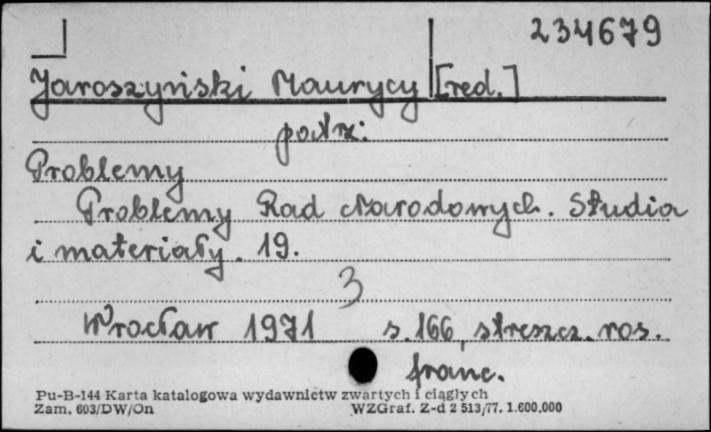 234679
Jaroszyński Maurycy [red.]
patrz:
Problemy
Problemy Rad Narodowych. Studia
i materiały. 19.
3
Wrocław 1971 s. 166, streszcz. ros.
franc.
Pu-B-144 Karta katalogowa wydawnictw zwartych i ciągłych
Zam. 603/DW/On WZGraf. Z-d 2 513/77. 1.600.000